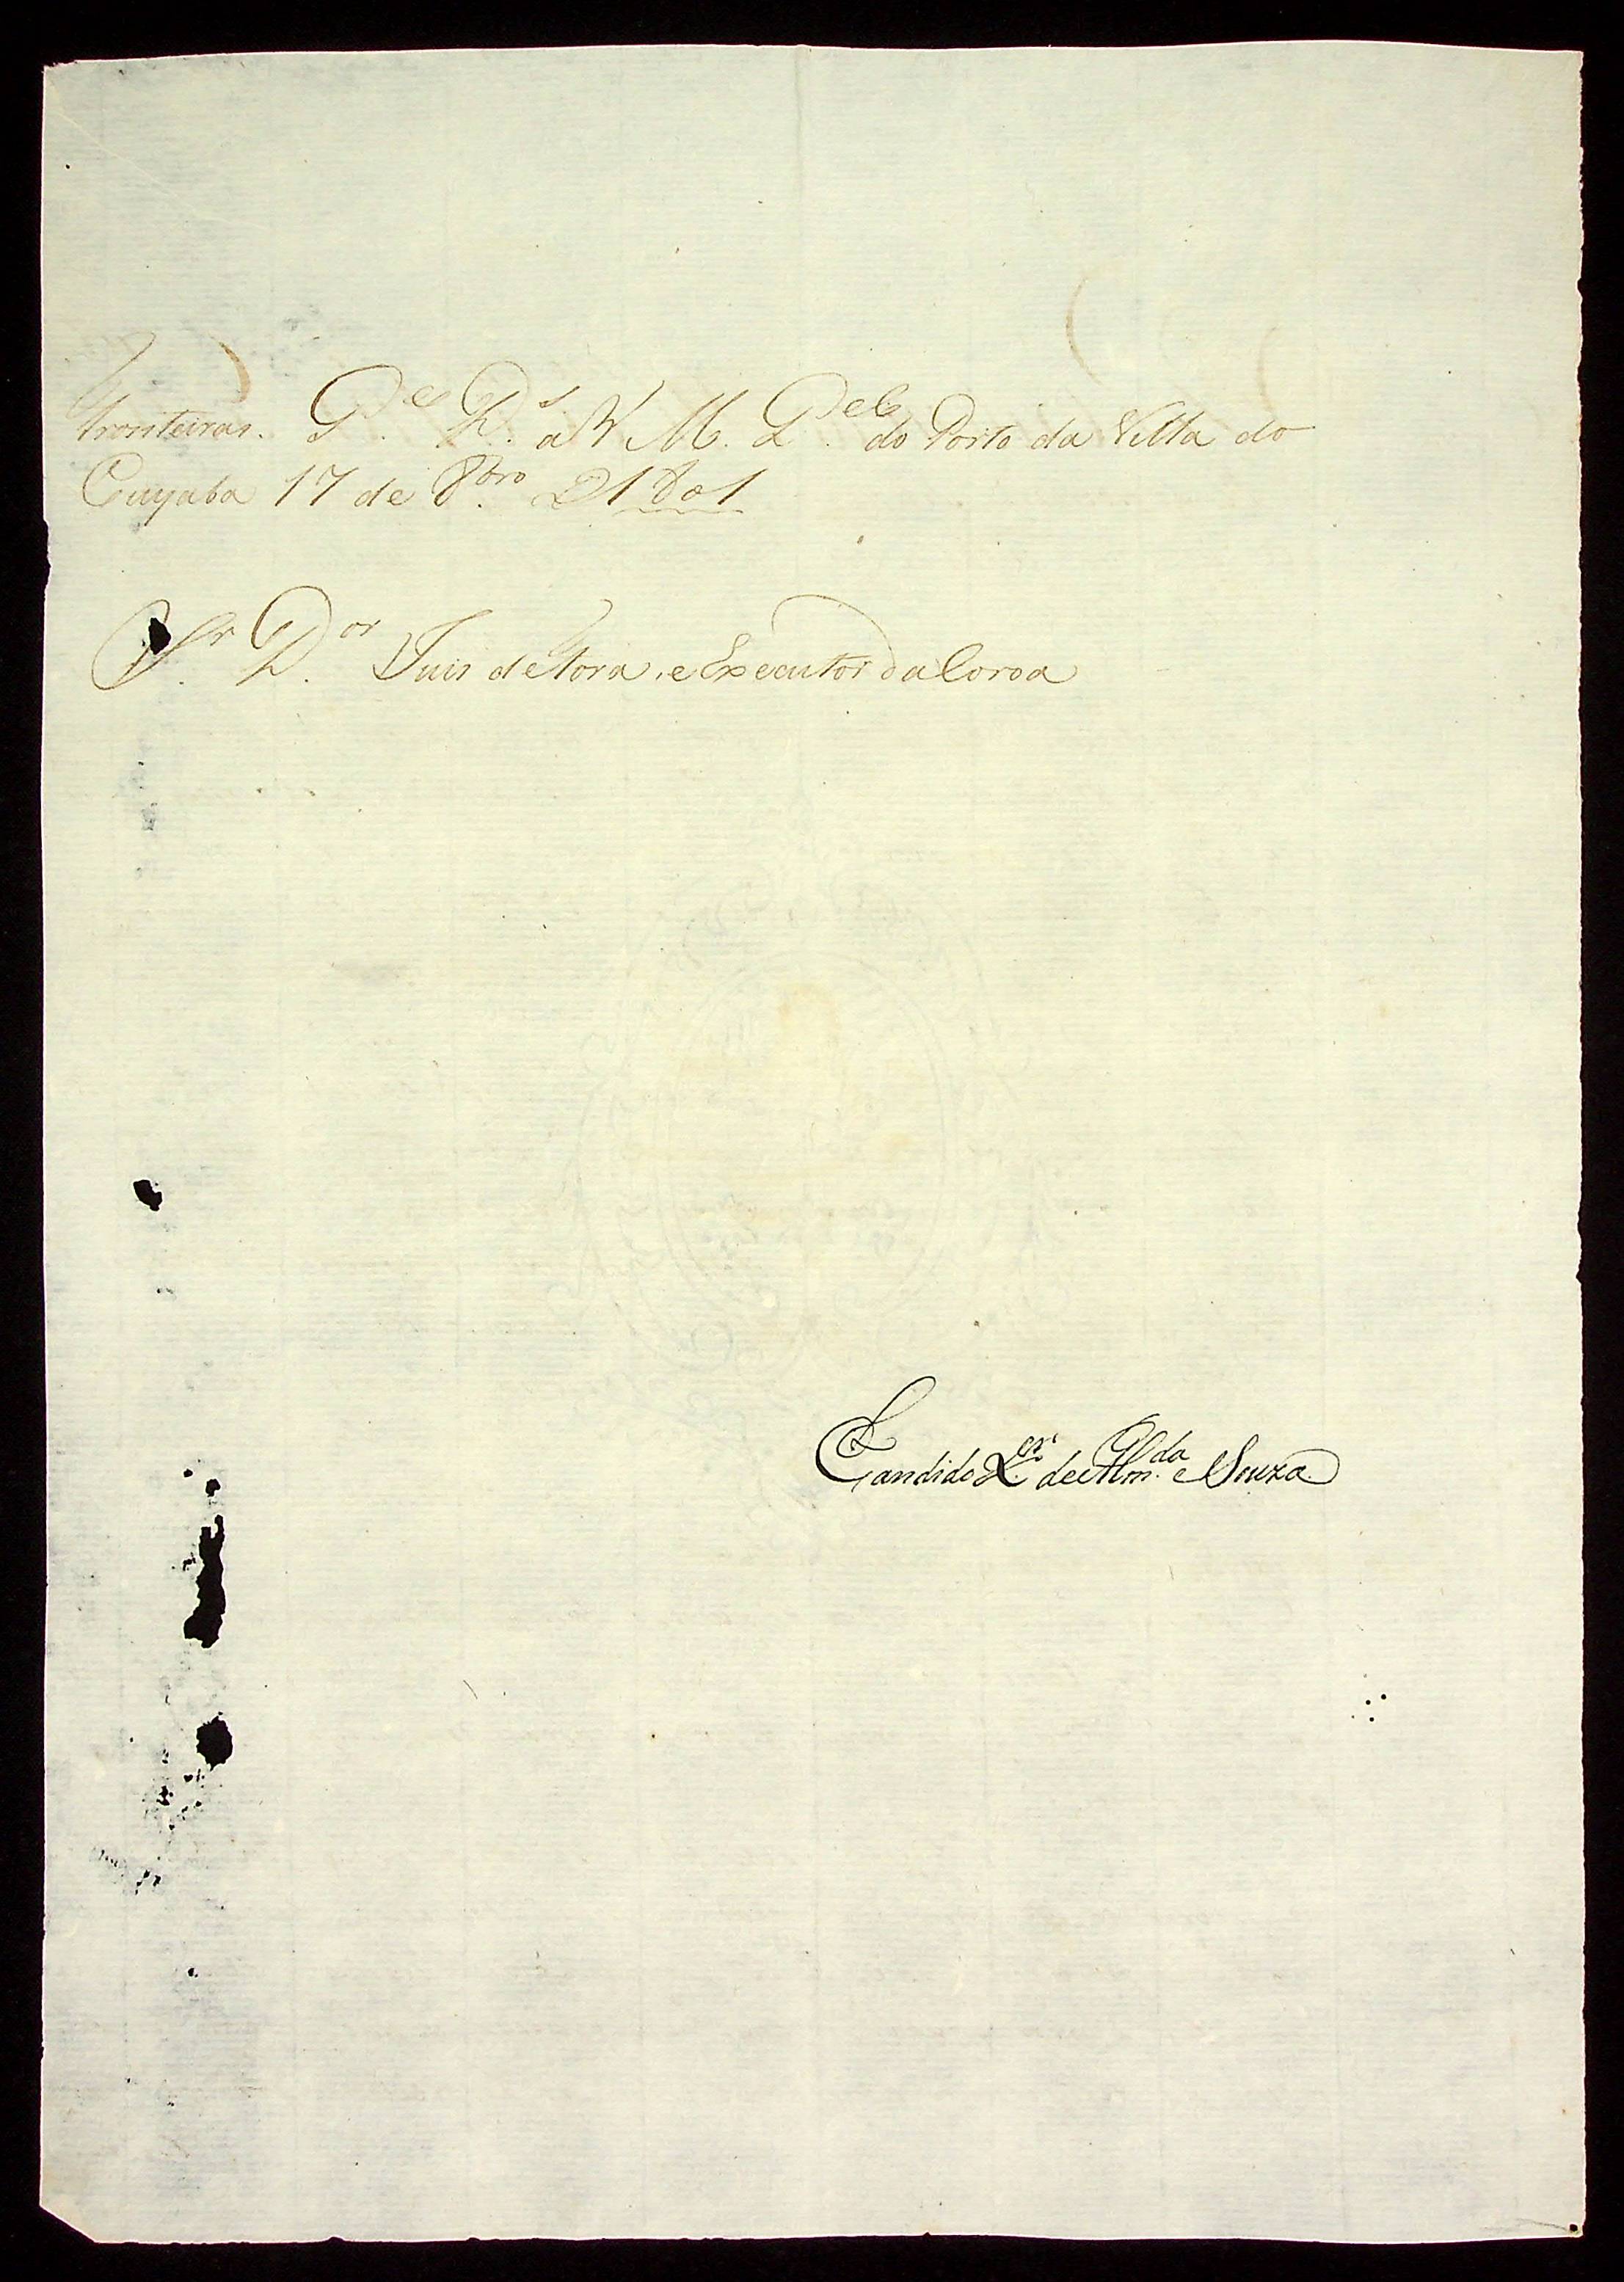 fronteiras. G.de D.s a V M. Q.el do Porto da Villa do
Cuyaba 17 de 8.bro D 1801
S.r D.or Juis de Fora, e Executor da Coroa
Candido X.er de Alm.da e Souza